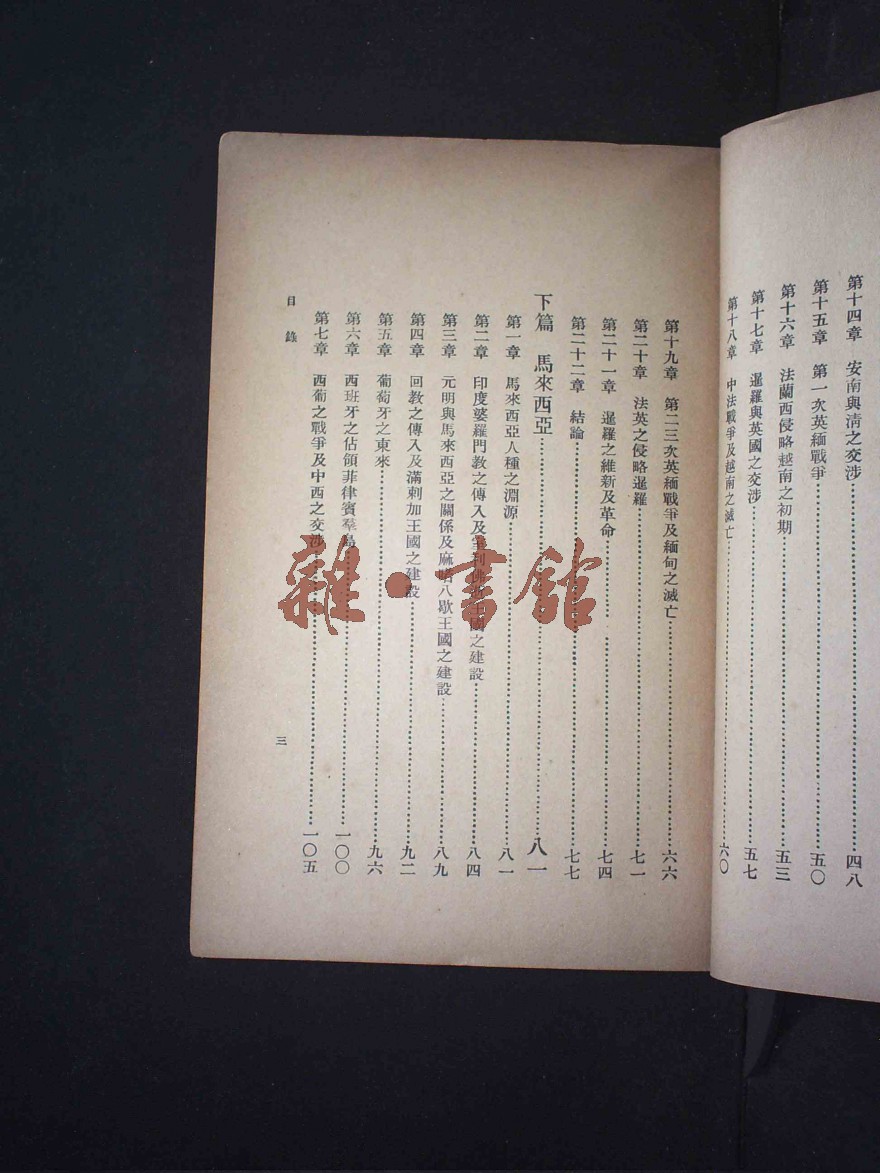 第十四章 安南與清之交涉……四八
第十五章 第一次英緬戰爭……五〇
第十六章 法蘭西侵略越南之初期……五三
第十七章 暹羅與英國之交涉……五七
第十八章 中法戰爭及越南之滅亡……六〇
第十九章 第二三次英緬戰爭及緬甸之滅亡……六六
第二十章 法英之侵略暹羅……七一
第二十一章 暹羅之維新及革命……七四
第二十二章 結論……七七
下篇 馬來西亞……八一
第一章 馬來西亞人種之淵源……八一
第二章 印度婆羅門教之傳入及室利佛逝王國之建設……八四
第三章 元明與馬來西亞之關係及麻喏八歇王國之建設……八九
第四章 回教之傳入及滿剌加王國之建設……九二
第五章 葡萄牙之東來……九六
第六章 西班牙之佔領菲律賓羣島……一〇〇
第七章 西葡之戰爭及中西之交涉……一〇五
目錄
三
雜·書館